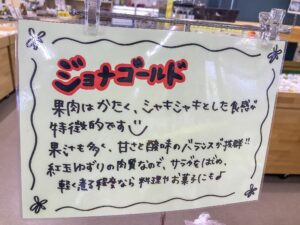 ジョナゴールド
果肉はかたく、シャキシャキとした食感が
特徴的です
果汁も多く、甘さと酸味のバランスが抜群!!
紅玉ゆずりの肉質なので、サラダをはじめ、
軽く煮る程度なら料理やお菓子にも♪